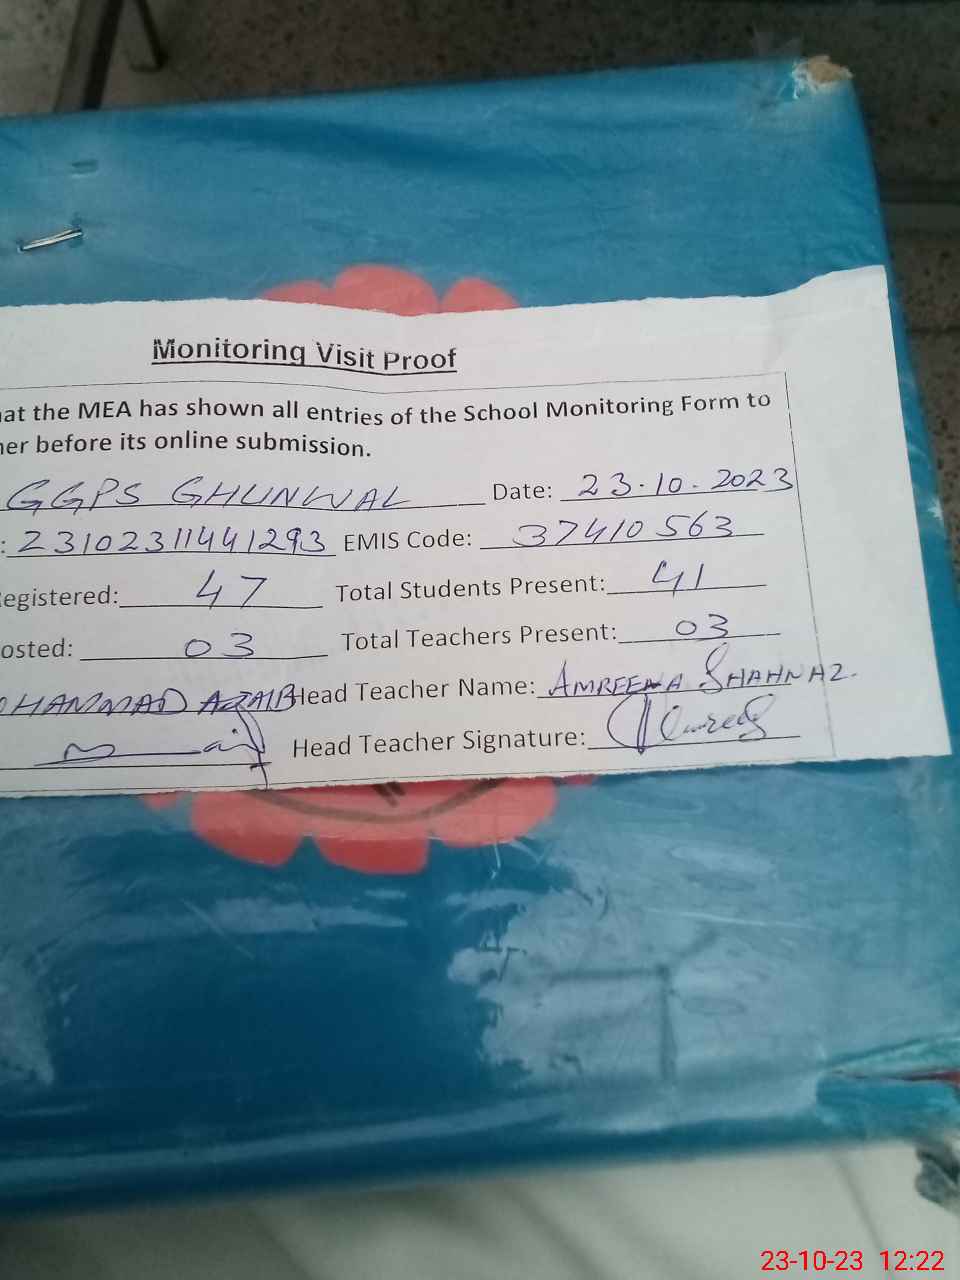 Monitoring Visit Proof
hat the MEA has shown all entries of the School Monitoring Form to
her before its online submission.
GGPS GHUNWAL Date: 23.10.2023
: 23102311441293 EMIS Code: 37410563
egistered: 47 Total Students Present: 41
osted: 03 Total Teachers Present: 03
OHAMMAD AZAIB Head Teacher Name: AMREENA SHAHNAZ.
Head Teacher Signature:
23-10-23 12:22